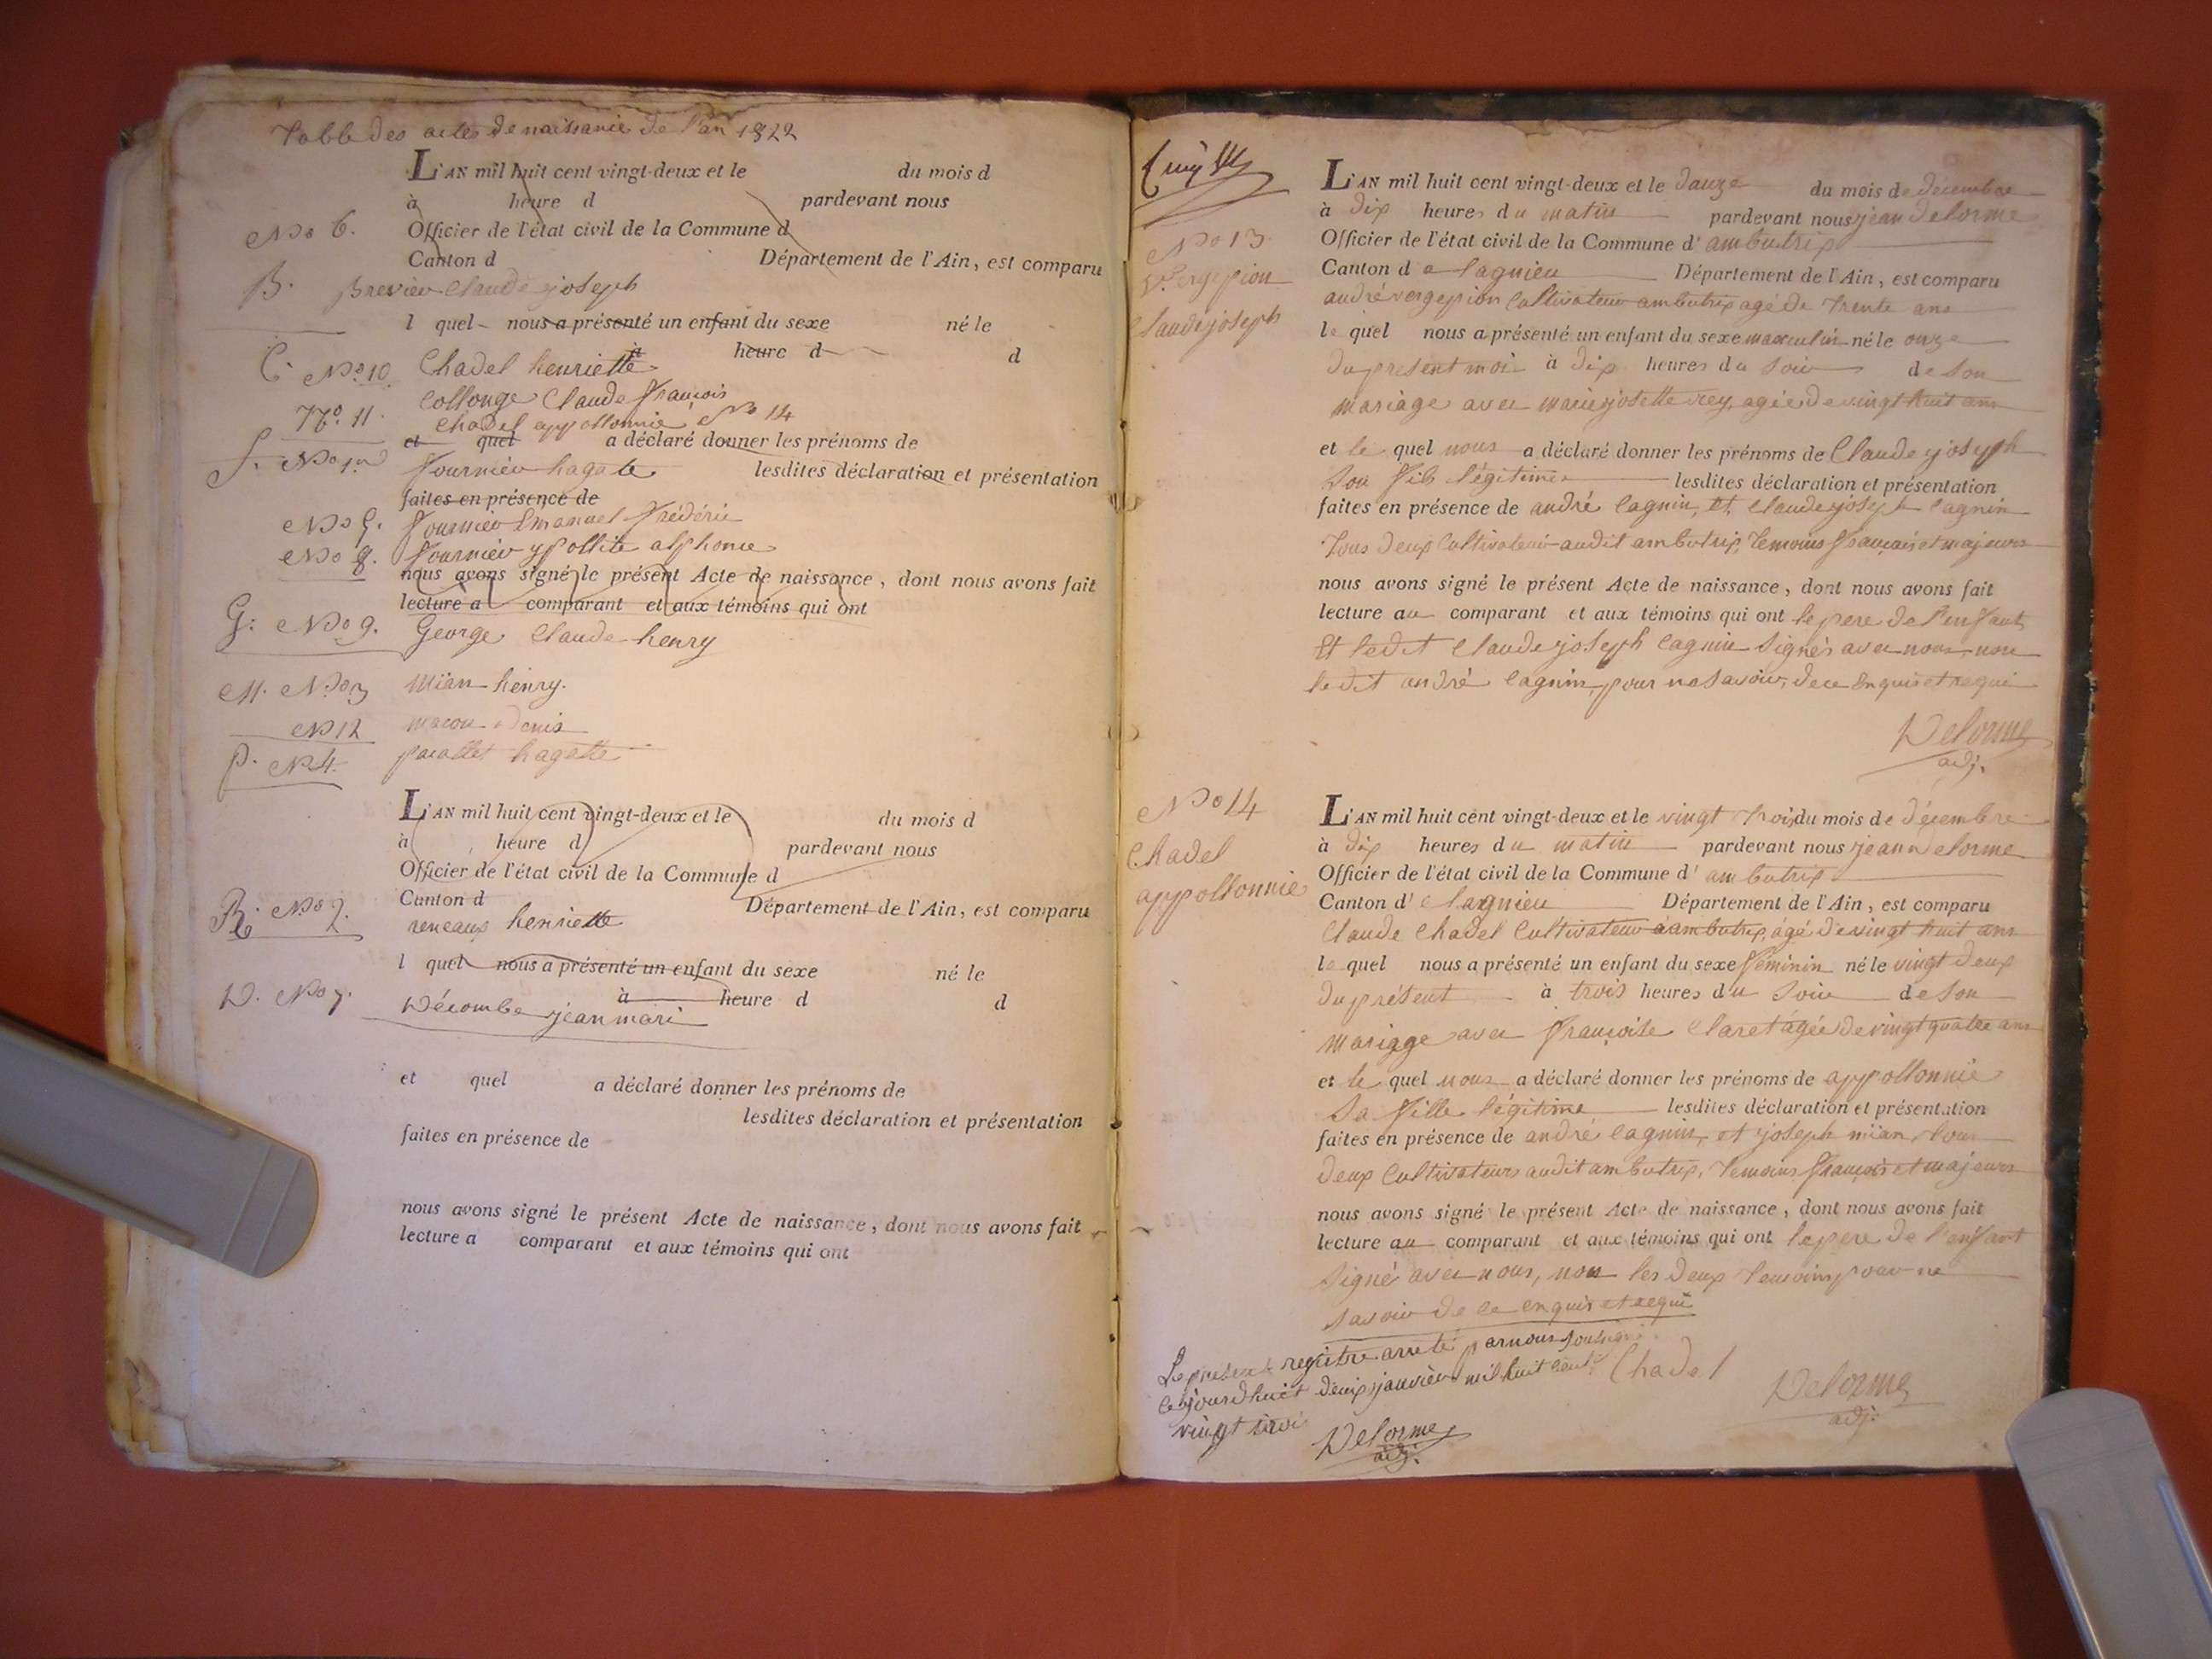 Table des actes de naissance de l'an 1822
L'AN mil huit cent vingt-deux et le du mois d
à heure d pardevant nous
No 6. Officier de l'état civil de la Commune d
Canton d Département de l'Ain, est comparu
B. Brevier Claude joseph
l quel nous a présenté un enfant du sexe né le
à heure d d
C. No 10 Chadel henriette
No 11. Collonge Claude françois
Chadel appollonnie No 14
et quel a déclaré donner les prénoms de
F. No 1er fournier hagate lesdites déclaration et présentation
faites en présence de
No 5. fournier Emanuel frédéric
No 8. fournier ypollite alphonce
nous avons signé le présent Acte de naissance, dont nous avons fait
lecture a comparant et aux témoins qui ont
G: No 9. George Claude henry
M. No 3 mian henry.
No 12 macon denis
P. No 4. hagatte
L'AN mil huit cent vingt-deux et le du mois d
à heure d pardevant nous
Officier de l'état civil de la Commune d
Canton d Département de l'Ain, est comparu
R. No 2. reneaux henriette
l quel nous a présenté un enfant du sexe né le
à heure d d
D. No 7. Décombe jean mari
et quel a déclaré donner les prénoms de
lesdites déclaration et présentation
faites en présence de
nous avons signé le présent Acte de naissance, dont nous avons fait
lecture a comparant et aux témoins qui ont
No 13
Vergepion
Claude joseph
L'AN mil huit cent vingt-deux et le douze du mois de décembre
à dix heures du matin pardevant nous jean Delorme
Officier de l'état civil de la Commune d'ambutrix
Canton de lagnieu Département de l'Ain, est comparu
andré vergepion Cultivateur ambutrix agé de trente ans
le quel nous a présenté un enfant du sexe masculin né le onze
du present moi à dix heures du soir de son
mariage avec marie josette rey, agée de vingt huit ans
et le quel nous a déclaré donner les prénoms de Claude joseph
son fils légitime lesdites déclaration et présentation
faites en présence de andré cagnin, et Claude joseph cagnin
tous deux Cultivateur audit ambutrix, temoins français et majeurs
nous avons signé le présent Acte de naissance, dont nous avons fait
lecture au comparant et aux témoins qui ont le pere de l'enfant
Et ledit Claude joseph cagnin signés avec nous, non
ledit andré cagnin, pour ne savoir, de ce Enquis et requi
Delorme
adj.
No 14
Chadel
appollonnie
L'AN mil huit cent vingt-deux et le vingt trois du mois de décembre
à dix heures du matin pardevant nous jean Delorme
Officier de l'état civil de la Commune d'ambutrix
Canton d'e lagnieu Département de l'Ain, est comparu
Claude Chadel Cultivateur à ambutrix, âgé de vingt huit ans
le quel nous a présenté un enfant du sexe féminin né le vingt deux
du présent à trois heures du soir de son
mariage avec françoise Claret âgée de vingt quatre ans
et le quel nous a déclaré donner les prénoms de appollonnie
sa fille légitime lesdites déclaration et présentation
faites en présence de andré cagnin, et joseph mian, tous
deux Cultivateurs audit ambutrix, temoins français et majeurs
nous avons signé le présent Acte de naissance, dont nous avons fait
lecture au comparant et aux témoins qui ont le pere de l'enfant
signé avec nous, non les deux temoins pour ne
savoir de ce enquis et requi
Le présent registre arreté par nous soussigné
cejourdhuit deux janvier mil huit cent
vingt trois
Chadel
Delorme
adj.
Delorme
adj.